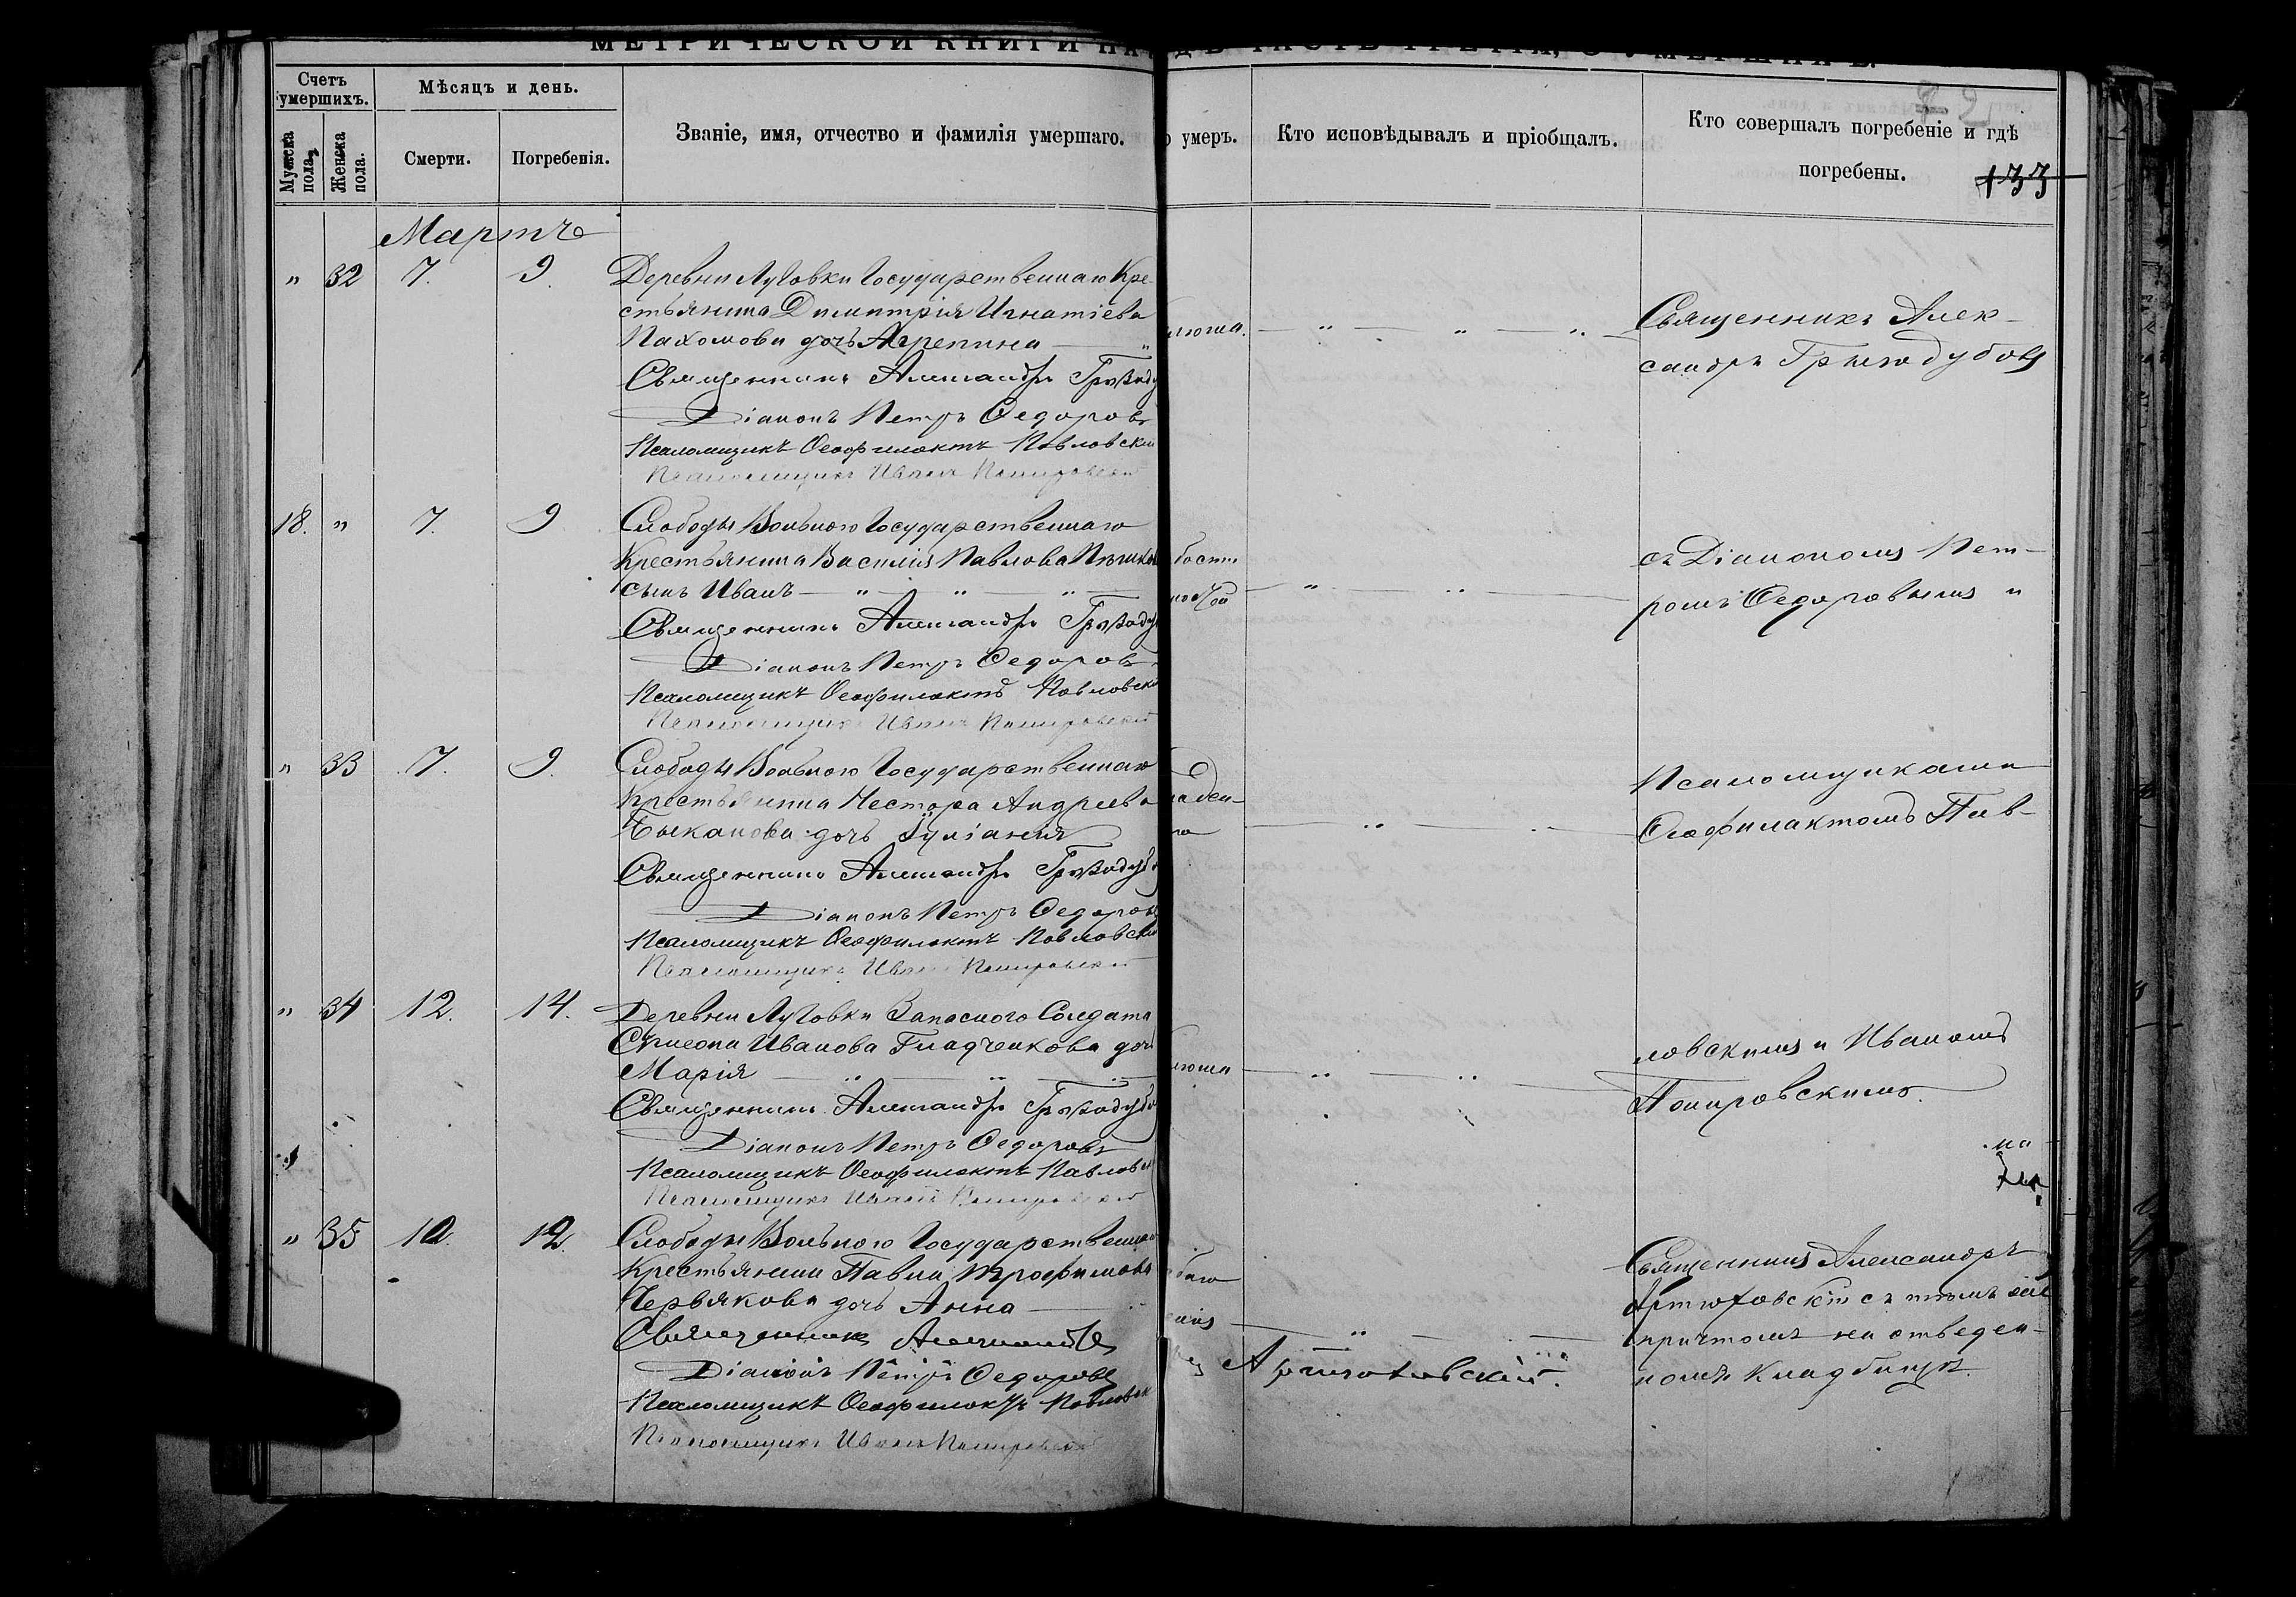 МЕТРИЧЕСКОЙ КНИГИ НА
ЧАСТЬ ТРЕТІЯ, О УМЕРШИХЪ.
Счетъ умершихъ.
Мужска пола,
Женска пола.
Мѣсяцъ и день.
Смерти.
Погребенія.
Званіе, имя, отчество и фамилія умершаго.
умеръ.
Кто исповѣдывалъ и пріобщалъ.
Кто совершалъ погребеніе и гдѣ
погребены.
133
Мартъ
" 32 7. 9.
Деревни Луговки Государственнаго Кре-
стьянина Димитрія Игнатіева
Пахомова дочь Агрепина
Священникъ Александръ
Діаконъ Петръ Федоровъ
Псаломщикъ Феофилактъ Павловскій
Псаломщикъ Иванъ
Священникъ Алек-
сандръ
18. " 7. 9
Слободы Вольного Государственнаго
Крестьянина Василія Павлова
сынъ Иванъ
Священникъ Александръ
Діаконъ Петръ Федоровъ
Псаломщикъ Феофилактъ Павловскій
Псаломщикъ Иванъ
съ Діакономъ Пет-
ромъ Федоровымъ и
" 33 7. 9.
Слободы Вольного Государственнаго
Крестьянина Нестора Андреева
Быканова дочь Іуліанія
Священникъ Александръ
Діаконъ Петръ Федоровъ
Псаломщикъ Феофилактъ Павловскій
Псаломщикъ Иванъ
Псаломщиками
Феофилактомъ Пав-
" 34 12. 14.
Деревни Луговки Запасного Солдата
Сѵмеона Иванова Гладченкова дочь
Марія
Священникъ Александръ
Діаконъ Петръ Федоровъ
Псаломщикъ Феофилактъ Павловск
Псаломщикъ Иванъ
ловскимъ и Иваномъ
" 35 10. 12.
Слободы Вольного Государственнаго
Крестьянина Павла Трофимова
Червякова дочь Анна
Священникъ Александръ
Артюховскій.
Діаконъ Петръ Федоровъ
Псаломщикъ Феофилактъ Павловск
Псаломщикъ Иванъ
Священникъ Александръ
Артюховскій съ тѣмъ же
причтомъ на отведен-
номъ кладбищѣ.